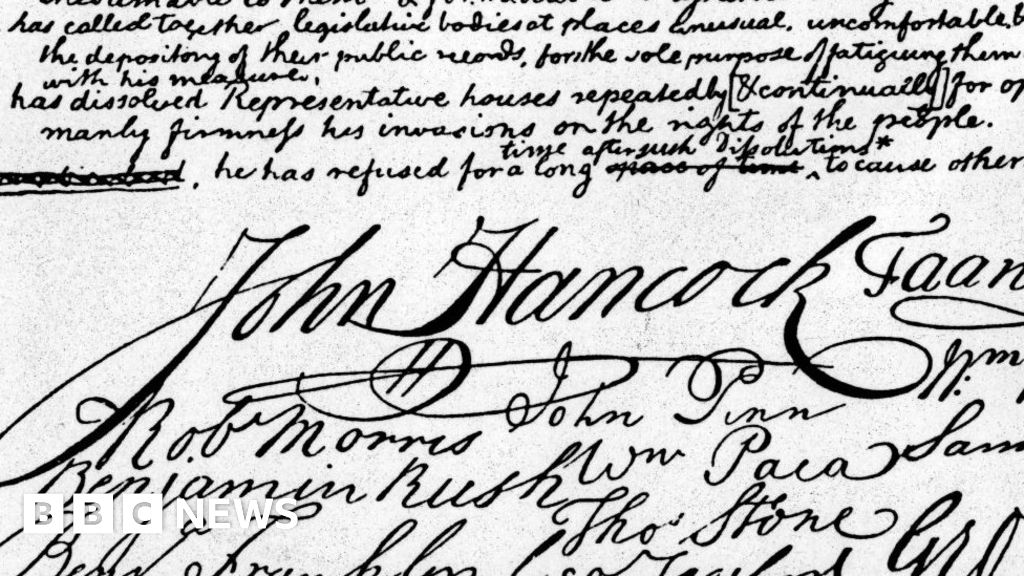 has called together legislative bodies at places unusual, uncomfortable, &
the depository of their public records, for the sole purpose of fatiguing them
with his measures.
has dissolved Representative houses repeatedly [& continually] for op
manly firmness his invasions on the rights of the people.
time after such Dissolutions*
he has refused for a long space of time ^ to cause other
John Hancock
Faan
Wm
Robt Morris
John Penn
Benjamin Rush
Wm Paca
Sam
Thos Stone
Benj Franklin
BBC NEWS